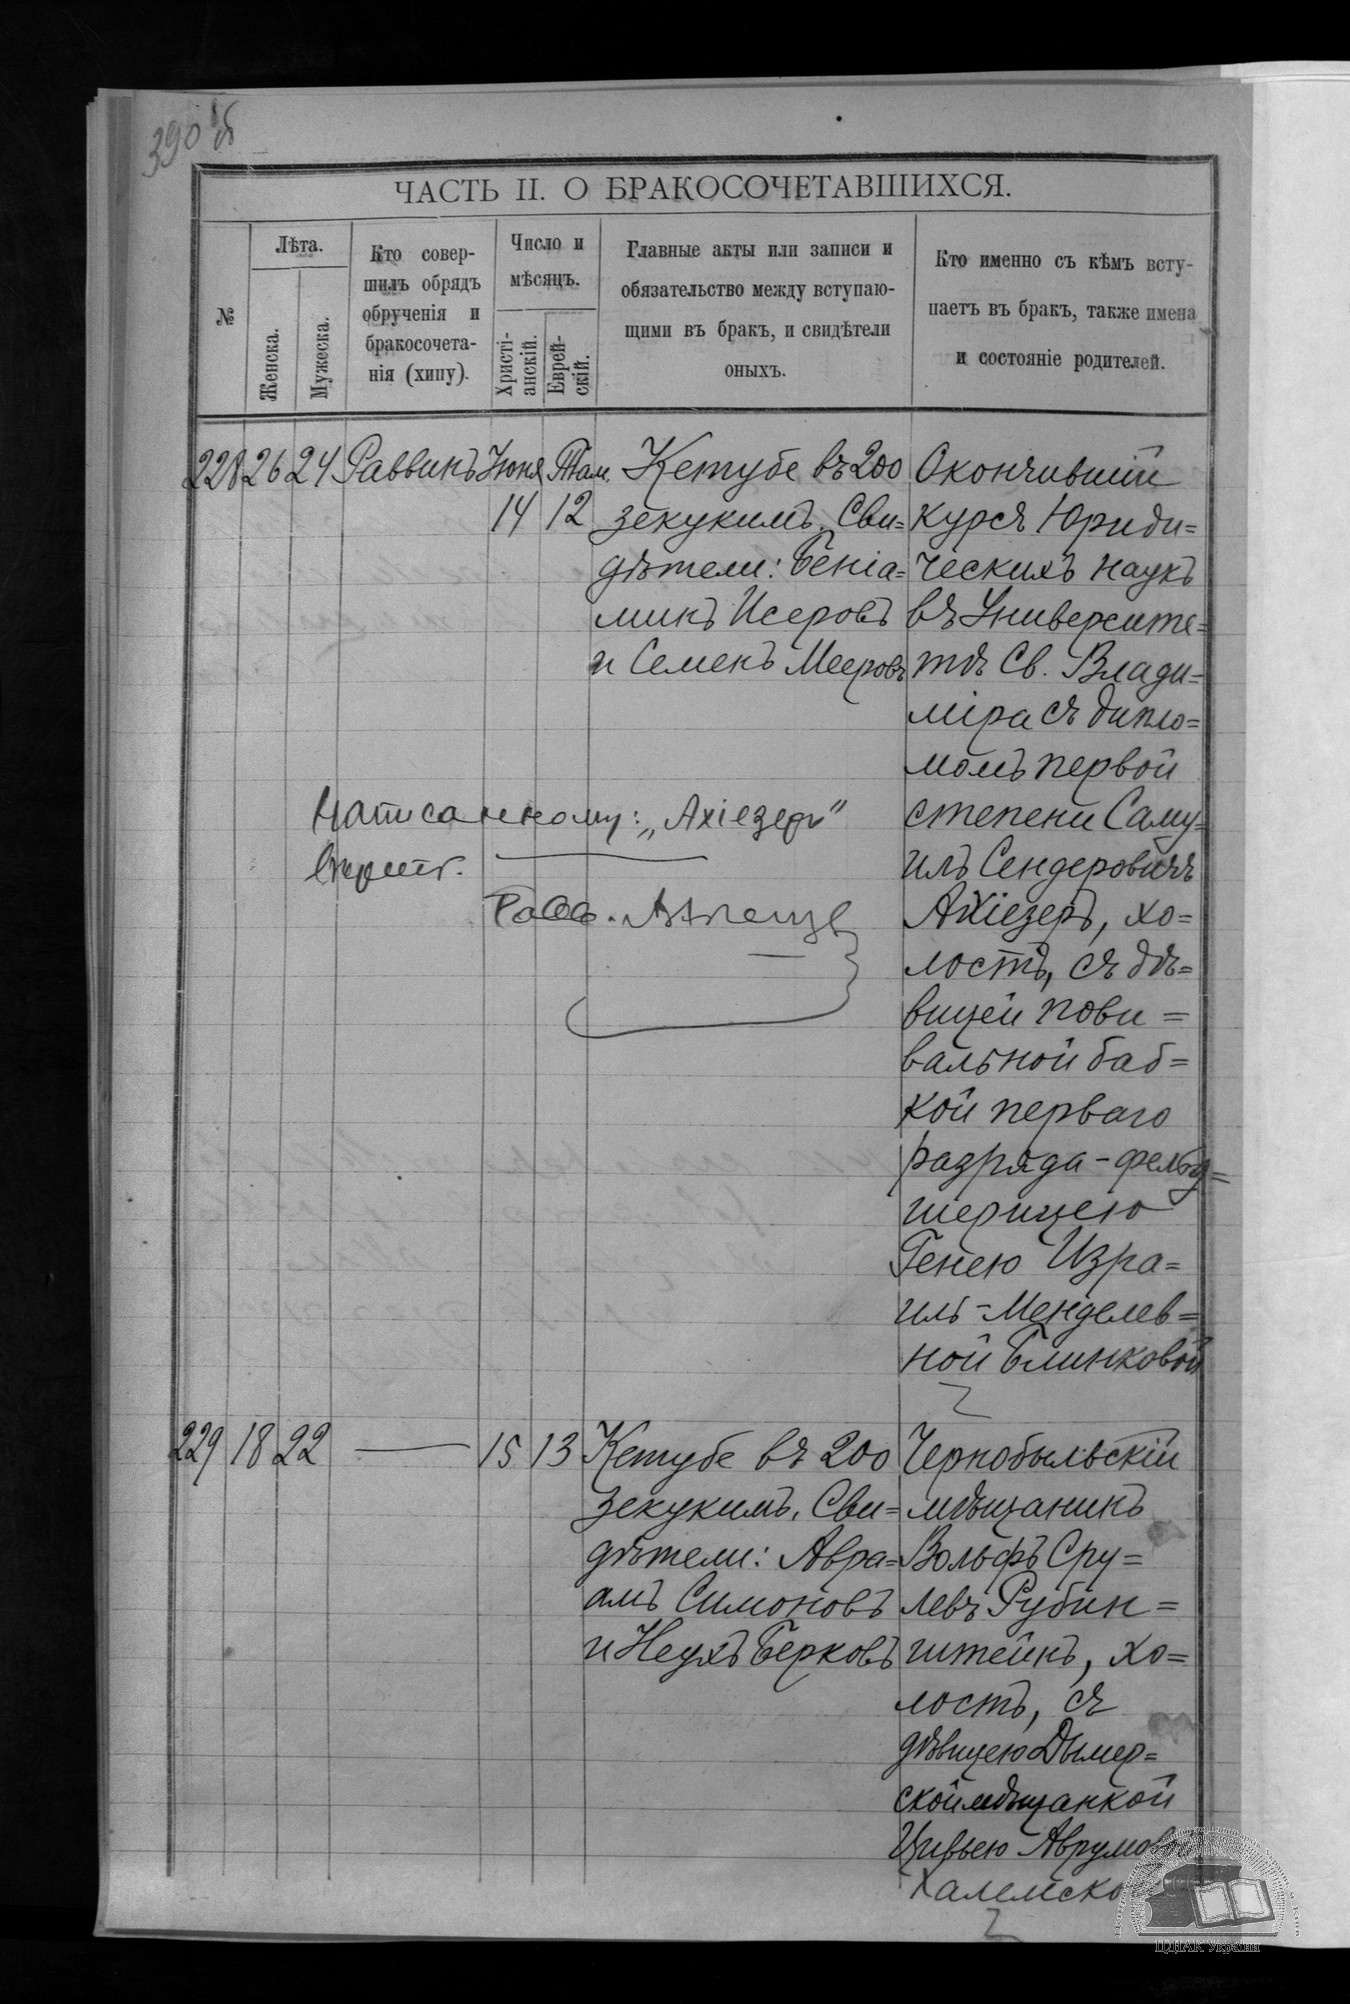 390 об
ЧАСТЬ II. О БРАКОСОЧЕТАВШИХСЯ.
№
Лѣта.
Женска.
Мужеска.
Кто совер-
шилъ обрядъ
обрученія и
бракосочета-
нія (хипу).
Число и
мѣсяцъ.
Христі-
анскій.
Еврей-
скій.
Главные акты или записи и
обязательство между вступаю-
щими въ бракъ, и свидѣтели
оныхъ.
Кто именно съ кѣмъ всту-
паетъ въ бракъ, также имена
и состояніе родителей.
228 26 24 Раввинъ Іюня Там.
14 12
Кетубе въ 200
зекукимъ. Сви=
дѣтели: Беніа=
минъ Исеровъ
и Семенъ Мееровъ
Окончившій
курсъ Юриди=
ческихъ наукъ
въ Университе=
тѣ Св. Влади=
міра съ дипло=
момъ первой
степени Саму=
илъ Сендеровичъ
Ахіезеръ, хо=
лостъ, съ дѣ=
вицей пови=
вальной баб=
кой перваго
разряда-фельд=
шерицею
Генею Изра=
иль-Менделев=
ной Блинковой
Написанному: „Ахіезеръ"
вѣрить.
Равв.
229 18 22 — 15 13
Кетубе въ 200
зекукимъ. Сви=
дѣтели: Авра=
амъ Симоновъ
и Неухъ Берковъ
Чернобыльскій
мѣщанинъ
Вольфъ Сру=
левъ Рубин=
штейнъ, хо=
лостъ, съ
дѣвицею Дымер=
ской мѣщанкой
Цивьею
ЦДІАК України